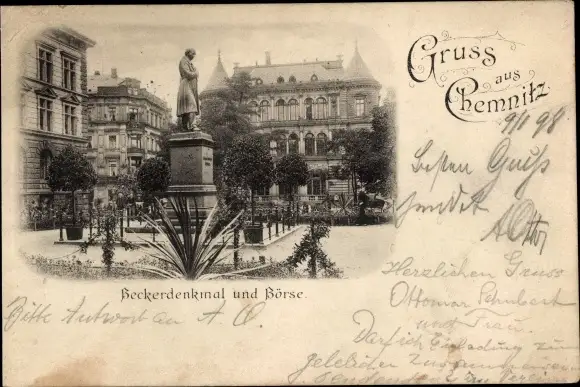 Gruss
aus
Chemnitz
9/1 98
besten Gruß
sendet
A Otto
Beckerdenkmal und Börse.
Bitte Antwort an A. O
Herzlichen Gruss
Ottomar Schubert
und Frau.
Darf ich Einladung zum